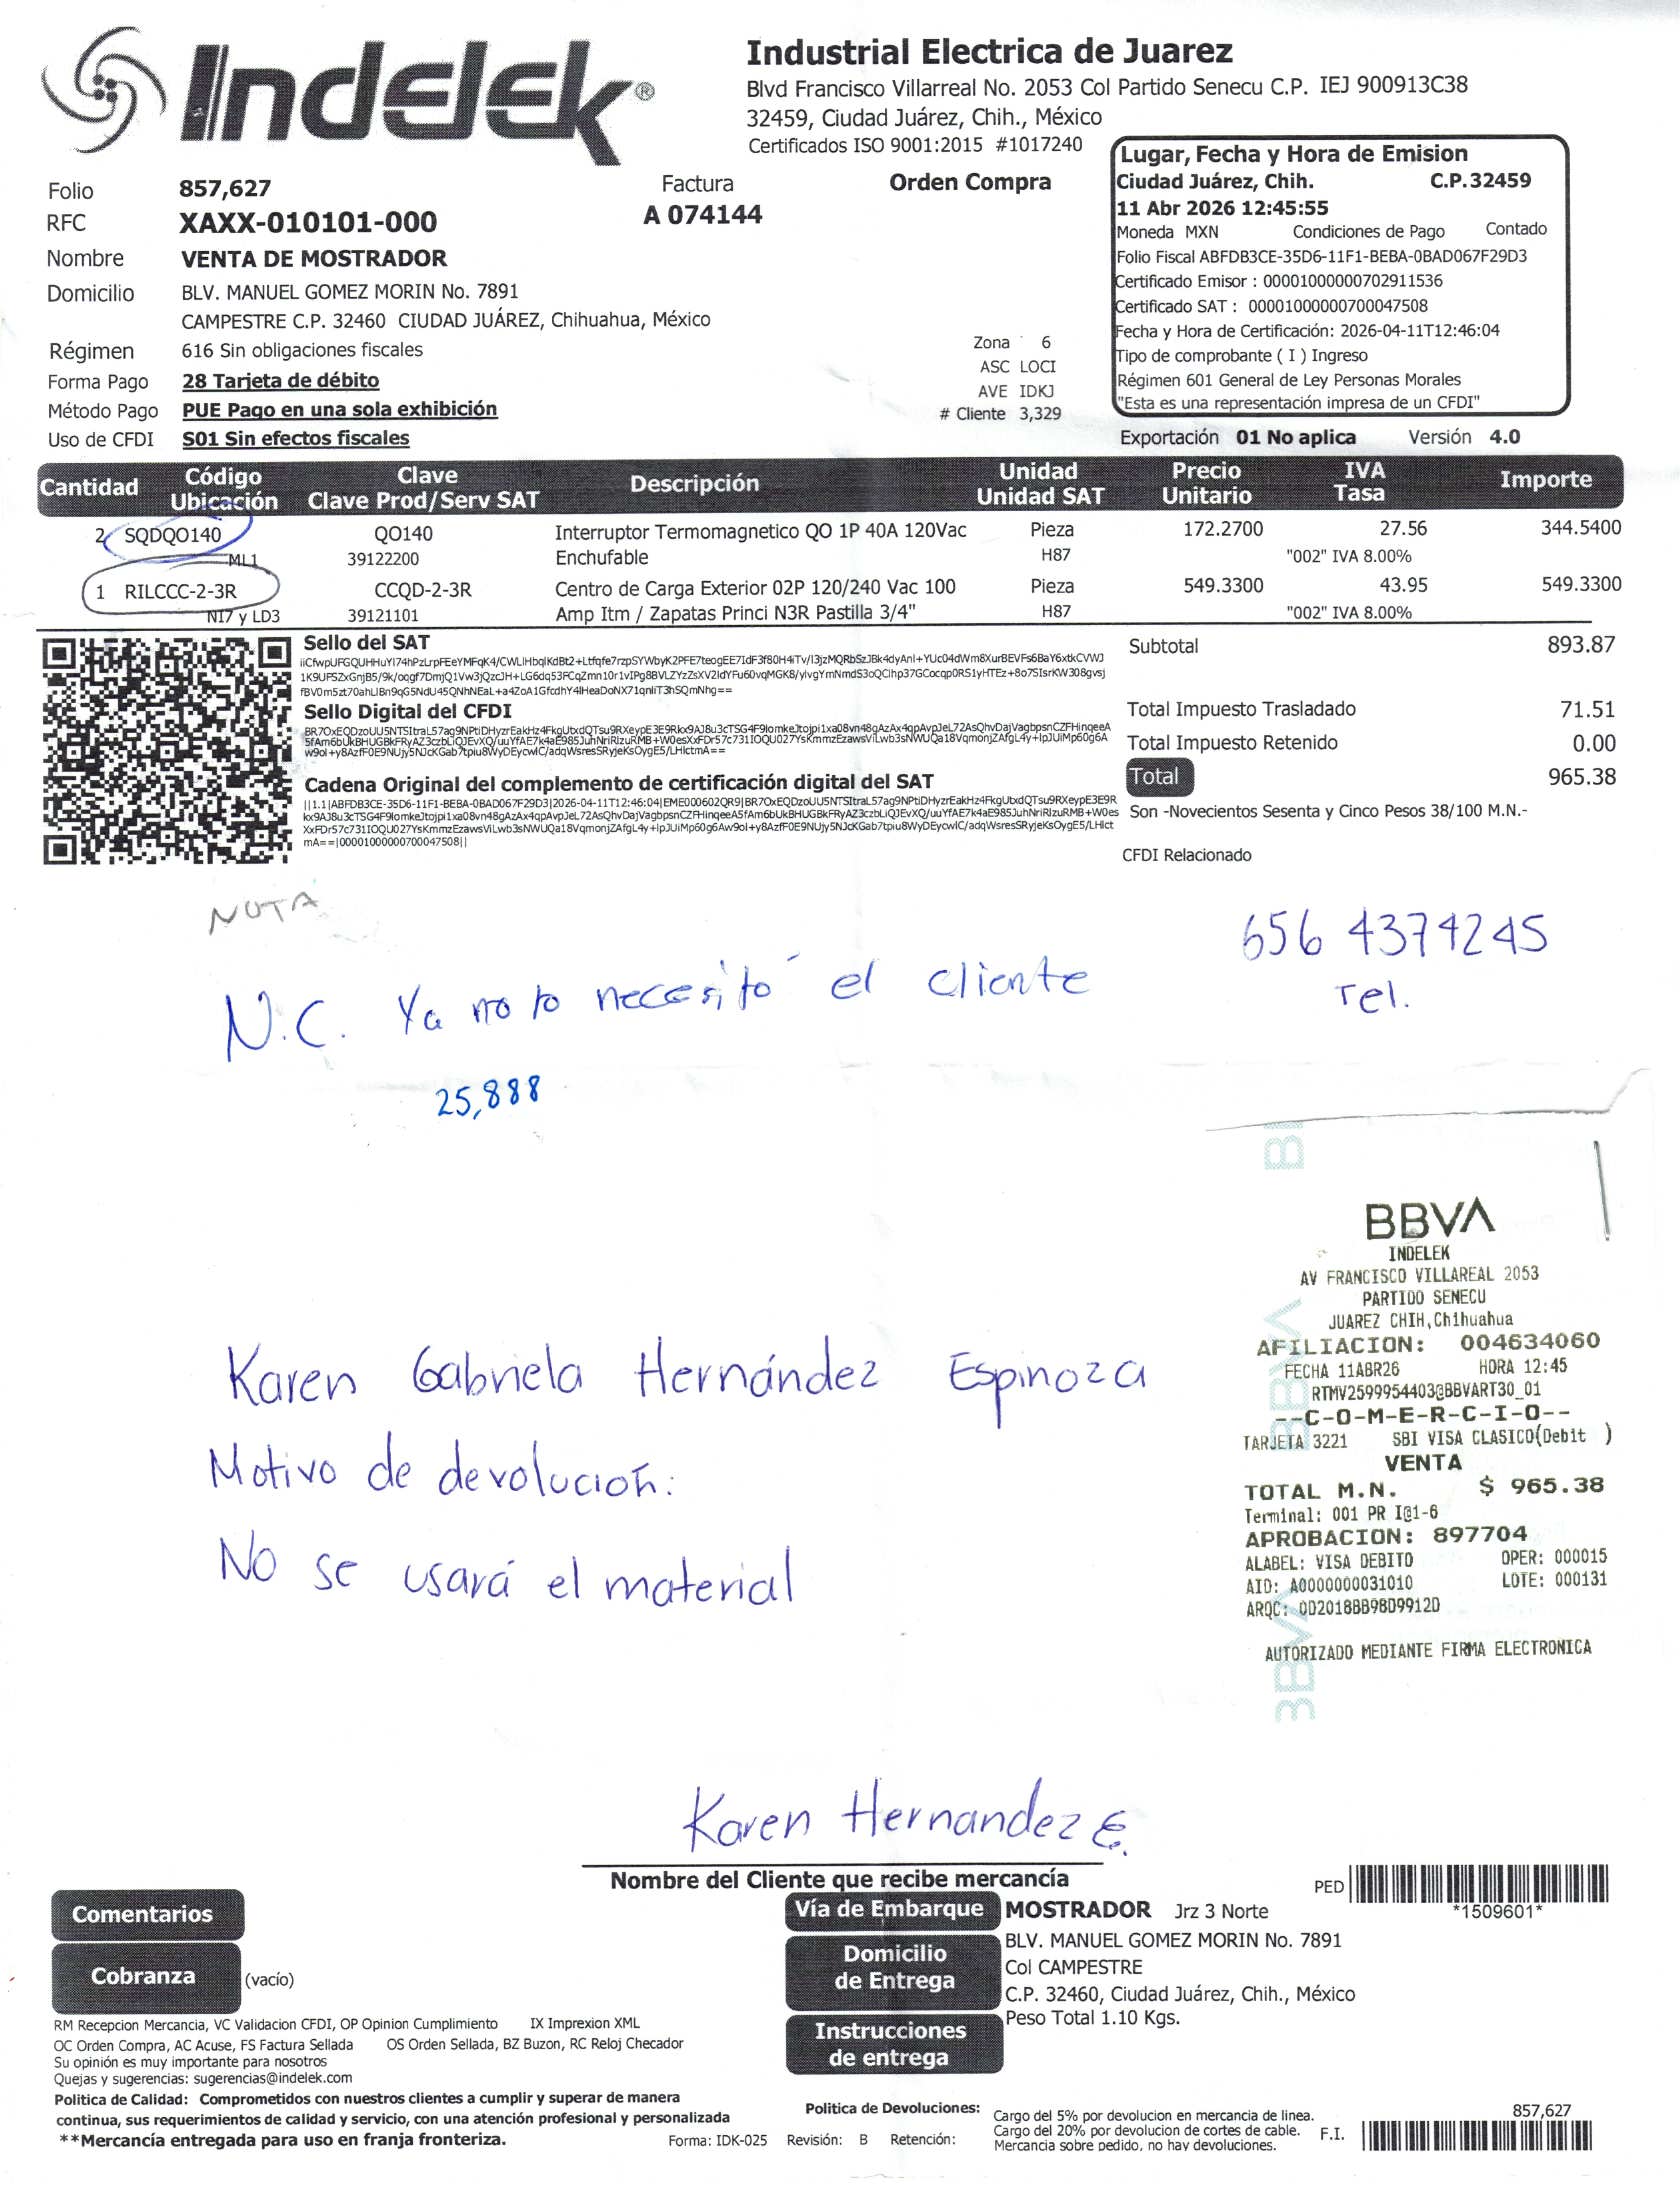 Indelek®
Industrial Electrica de Juarez
Blvd Francisco Villarreal No. 2053 Col Partido Senecu C.P. IEJ 900913C38
32459, Ciudad Juárez, Chih., México
Certificados ISO 9001:2015 #1017240
Folio 857,627
Factura
Orden Compra
RFC XAXX-010101-000
A 074144
Nombre VENTA DE MOSTRADOR
Domicilio BLV. MANUEL GOMEZ MORIN No. 7891
CAMPESTRE C.P. 32460 CIUDAD JUÁREZ, Chihuahua, México
Régimen 616 Sin obligaciones fiscales
Forma Pago 28 Tarjeta de débito
Método Pago PUE Pago en una sola exhibición
Uso de CFDI S01 Sin efectos fiscales
Zona 6
ASC LOCI
AVE IDKJ
# Cliente 3,329
Lugar, Fecha y Hora de Emision
Ciudad Juárez, Chih. C.P.32459
11 Abr 2026 12:45:55
Moneda MXN Condiciones de Pago Contado
Folio Fiscal ABFDB3CE-35D6-11F1-BEBA-0BAD067F29D3
Certificado Emisor : 00001000000702911536
Certificado SAT : 00001000000700047508
Fecha y Hora de Certificación: 2026-04-11T12:46:04
Tipo de comprobante ( I ) Ingreso
Régimen 601 General de Ley Personas Morales
"Esta es una representación impresa de un CFDI"
Exportación 01 No aplica Versión 4.0
Cantidad Código Clave Descripción Unidad Precio IVA Importe
Ubicación Clave Prod/Serv SAT Unidad SAT Unitario Tasa
2 SQDQO140 QO140 Interruptor Termomagnetico QO 1P 40A 120Vac Pieza 172.2700 27.56 344.5400
ML1 39122200 Enchufable H87 "002" IVA 8.00%
1 RILCCC-2-3R CCQD-2-3R Centro de Carga Exterior 02P 120/240 Vac 100 Pieza 549.3300 43.95 549.3300
NI7 y LD3 39121101 Amp Itm / Zapatas Princi N3R Pastilla 3/4" H87 "002" IVA 8.00%
Sello del SAT
Sello Digital del CFDI
Cadena Original del complemento de certificación digital del SAT
Subtotal 893.87
Total Impuesto Trasladado 71.51
Total Impuesto Retenido 0.00
Total 965.38
Son -Novecientos Sesenta y Cinco Pesos 38/100 M.N.-
CFDI Relacionado
NOTA
656 4374245
Tel.
N.C. Ya no lo necesitó el cliente
25,888
Karen Gabriela Hernández Espinoza
Motivo de devolución:
No se usará el material
BBVA
INDELEK
AV FRANCISCO VILLAREAL 2053
PARTIDO SENECU
JUAREZ CHIH,Chihuahua
AFILIACION: 004634060
FECHA 11ABR26 HORA 12:45
RTMV2599954403@BBVART30_01
--C-O-M-E-R-C-I-O--
TARJETA 3221 SBI VISA CLASICO(Debit )
VENTA
TOTAL M.N. $ 965.38
Terminal: 001 PR I@1-6
APROBACION: 897704
ALABEL: VISA DEBITO OPER: 000015
AID: A0000000031010 LOTE: 000131
ARQC: 0D2018BB98D9912D
AUTORIZADO MEDIANTE FIRMA ELECTRONICA
Karen Hernandez E.
Nombre del Cliente que recibe mercancía
PED
*1509601*
Comentarios
Cobranza (vacío)
Vía de Embarque MOSTRADOR Jrz 3 Norte
Domicilio de Entrega
BLV. MANUEL GOMEZ MORIN No. 7891
Col CAMPESTRE
C.P. 32460, Ciudad Juárez, Chih., México
Peso Total 1.10 Kgs.
Instrucciones de entrega
RM Recepcion Mercancia, VC Validacion CFDI, OP Opinion Cumplimiento IX Imprexion XML
OC Orden Compra, AC Acuse, FS Factura Sellada OS Orden Sellada, BZ Buzon, RC Reloj Checador
Su opinión es muy importante para nosotros
Quejas y sugerencias: sugerencias@indelek.com
Politica de Calidad: Comprometidos con nuestros clientes a cumplir y superar de manera
continua, sus requerimientos de calidad y servicio, con una atención profesional y personalizada
**Mercancía entregada para uso en franja fronteriza.
Forma: IDK-025 Revisión: B Retención:
Politica de Devoluciones:
Cargo del 5% por devolucion en mercancia de linea.
Cargo del 20% por devolucion de cortes de cable.
Mercancia sobre pedido, no hay devoluciones.
F.I.
857,627